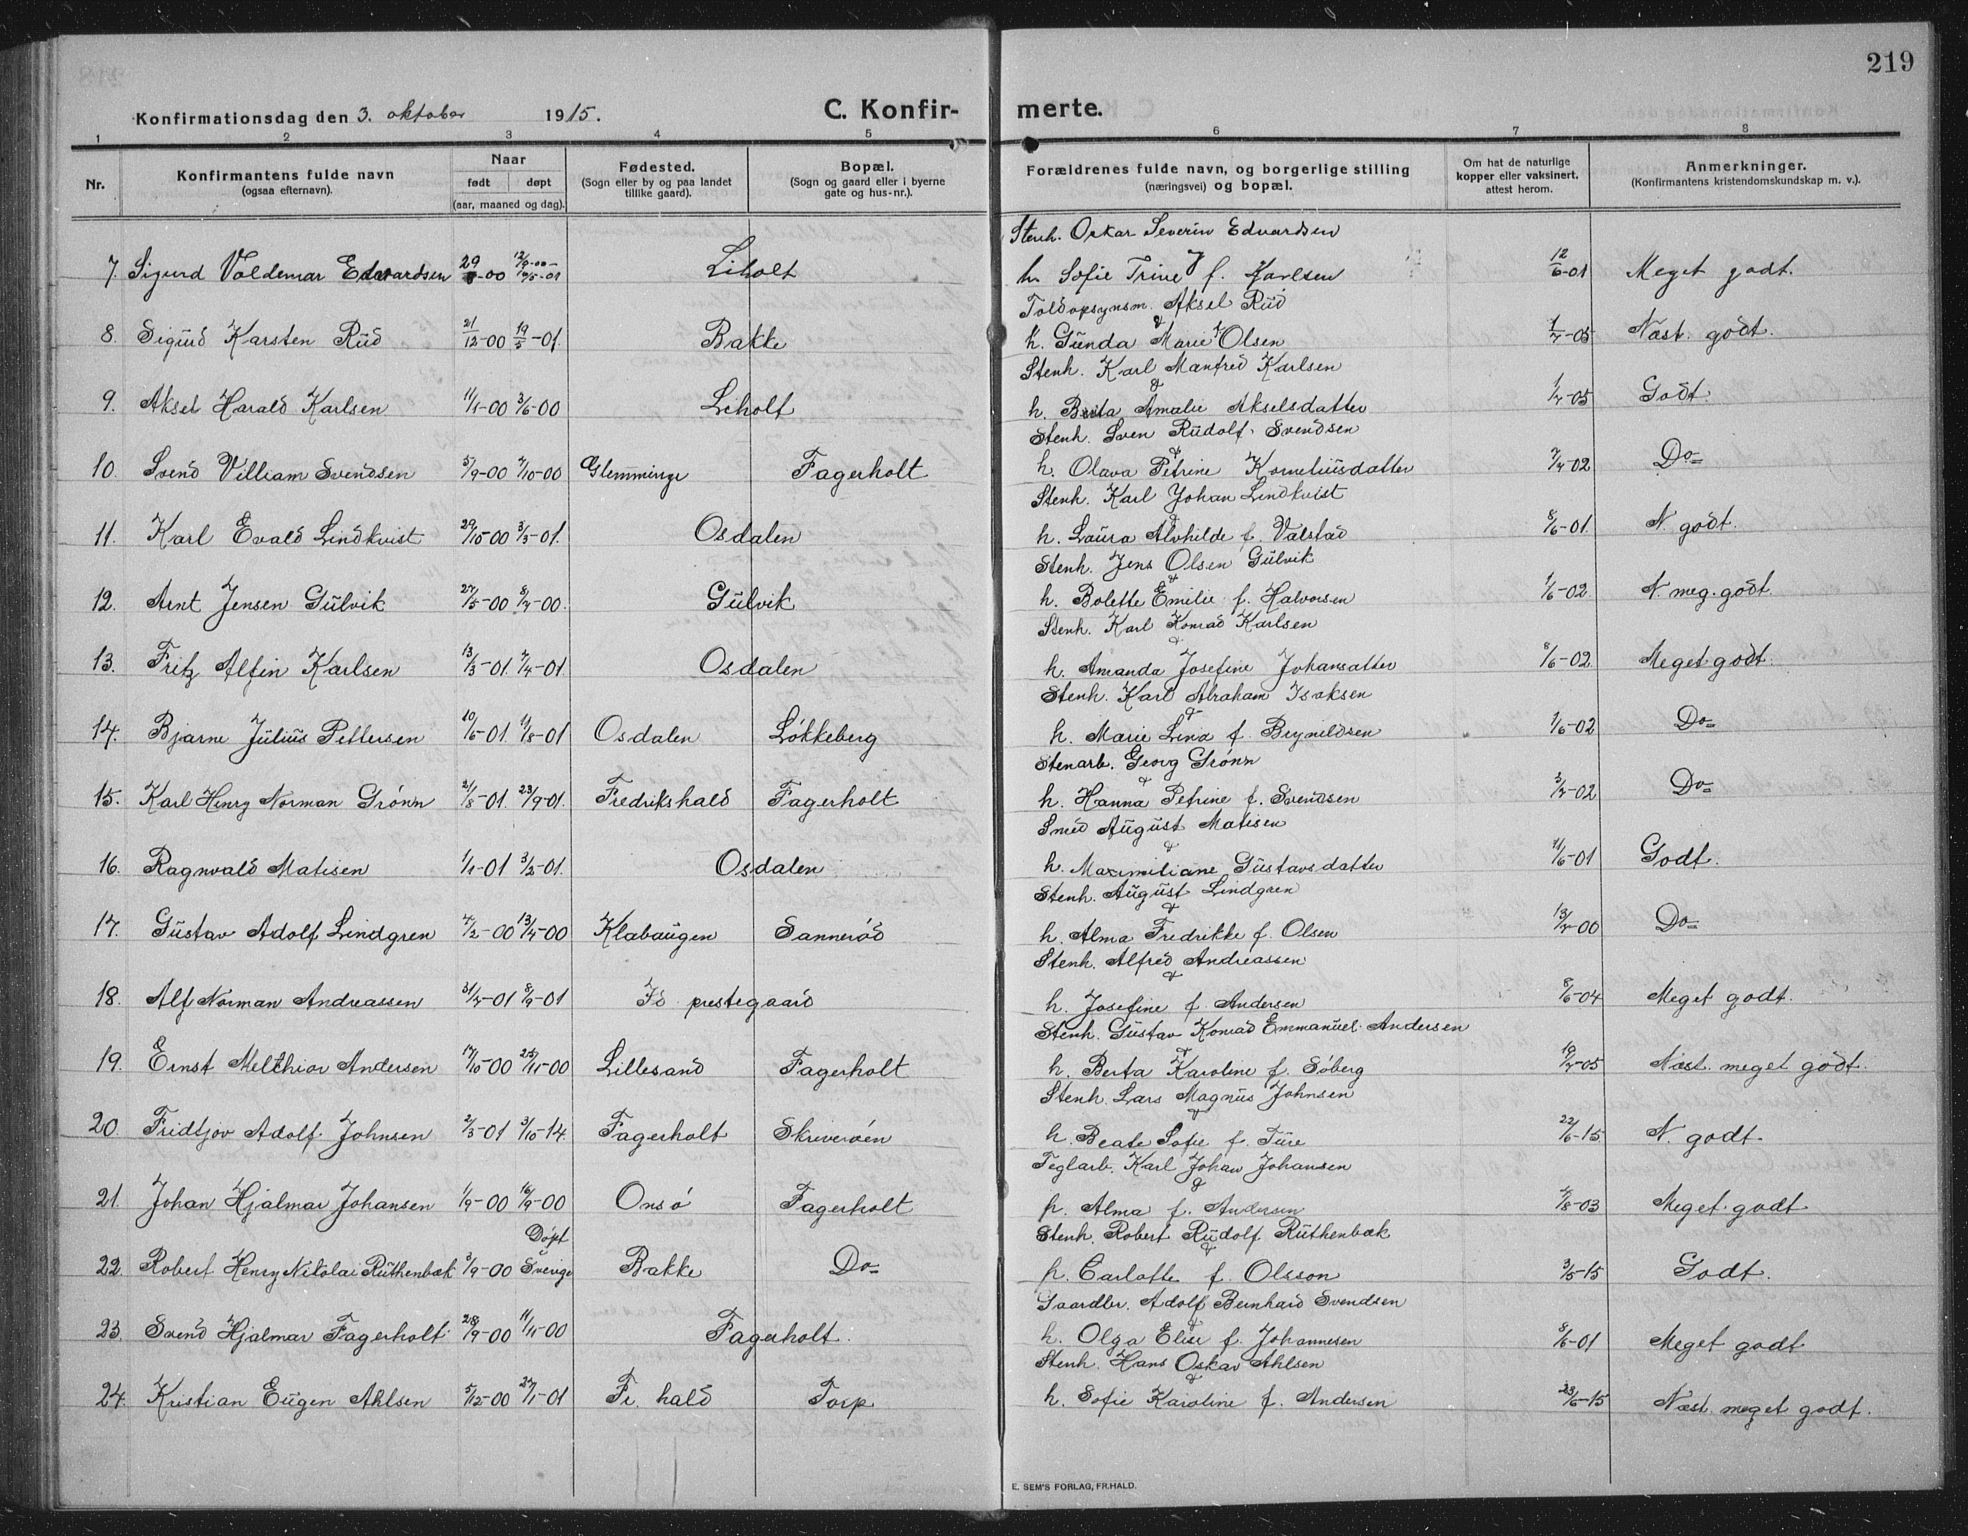 219
Konfirmationsdag den 3. oktober 1915. C. Konfir- merte.
1 2 3 4 5 6 7 8
Nr. Konfirmantens fulde navn (ogsaa efternavn). Naar født døpt (aar, maaned og dag). Fødested. (Sogn eller by og paa landet tillike gaard). Bopæl. (Sogn og gaard eller i byerne gate og hus-nr.). Forældrenes fulde navn, og borgerlige stilling (næringsvei) og bopæl. Om hat de naturlige kopper eller vaksinert. attest herom. Anmerkninger. (Konfirmantens kristendomskundskap m. v.).
Stenh. Oskar Severin Edvardsen
7. Sigurd Valdemar Edvardsen Liholt h. Sofie Trine f. Karlsen 12/6-01 Meget godt.
Toldopsynsm. Aksel Rud &
8. Sigurd Karsten Rud 21/12-00 19/5-01. Bakke h. Gunda Marie Olsen 1/7-05 Næst. godt.
Stenh. Karl Manfred Karlsen &
9. Aksel Harald Karlsen 11/1-00 3/6-00 Liholt h. Berta Amalie Akselsdatter 1/7-05 Godt.
Stenh. Sven Rudolf Svendsen &
10. Svend Villiam Svendsen 5/9-00 7/10-00 Glemminge Fagerholt h. Olava Petrine Korneliusdatter 7/7-02 Do=
Stenh. Karl Johan Lindkvist &
11. Karl Evald Lindkvist 29/10-00 3/3-01. Osdalen h. Laura Alvhilde f. Valstad 8/6-01. N. godt.
Stenh. Jens Olsen Gulvik &
12. Arnt Jensen Gulvik 27/5-00 8/7-00. Gulvik h. Bolette Emilie f. Halvorsen 1/6-02 N. meg. godt
Stenh. Karl Konrad Karlsen &
13. Fritz Alfin Karlsen 13/3-01. 7/4-01. Osdalen h. Amanda Josefine Johansatter 8/6-02 Meget godt.
Stenh. Karl Abraham Isaksen &
14. Bjarne Julius Pettersen 10/6-01. 11/8-01 Osdalen Løkkeberg h. Marie Lina f. Brynildsen 1/6-02 Do=
Stenarb. Georg Grønn &
15. Karl Henry Norman Grønn 2/8-01. 23/9-01. Fredrikshald Fagerholt h. Hanna Petrine f. Svendsen 3/7-02 Do=
Smed August Matisen &
16. Ragnvald Matisen 1/1-01 3/2-01. Osdalen h. Maximiliane Gustavsdatter 11/6-01 Godt.
Stenh. August Lindgren &
17. Gustav Adolf Lindgren 7/2-00 13/4-00 Klabaugen Sannerød h. Alma Fredrikke f. Olsen 13/7-00 Do=
Stenh. Alfred Andreassen &
18. Alf Norman Andreassen 31/7-01 8/9-01 Id prestegaard h. Josefine f. Andersen 8/6-04 Meget godt.
Stenh. Gustav Konrad Emmanuel Andersen &
19. Ernst Melchior Andersen 17/10-00 25/11-00 Lillesand Fagerholt h. Berta Karoline f. Søberg 19/7-05 Næst. meget godt.
Stenh. Lars Magnus Johnsen &
20. Fridtjov Adolf Johnsen 2/3-01 3/10-14. Fagerholt Skriverøen h. Beate Sofie f. Ture 22/6-15. N. godt.
Teglarb. Karl Johan Johansen &
21. Johan Hjalmar Johansen 1/9-00 16/9-00 Onsø Fagerholt h. Alma f. Andersen 4/8-03 Meget godt
Døpt Stenh. Robert Rudolf Ruthenbæk &
22. Robert Henry Nikolai Ruthenbæk 3/9-00 Sverige Bakke Do= h. Carlotte f. Olsson 3/5-15 Godt.
Gaardbr. Adolf Bernhard Svendsen &
23. Svend Hjalmar Fagerholt 28/9-00 11/11-00 Fagerholt. h. Olga Elise f. Johannesen 8/6-01 Meget godt
Stenh. Hans Oskar Ahlsen &
24. Kristian Eugen Ahlsen 5/12-00 27/1-01 Fr. hald Torp h. Sofie Karoline f. Andersen 23/6-15 Næst. meget godt.
E. SEM'S FORLAG, FR.HALD.